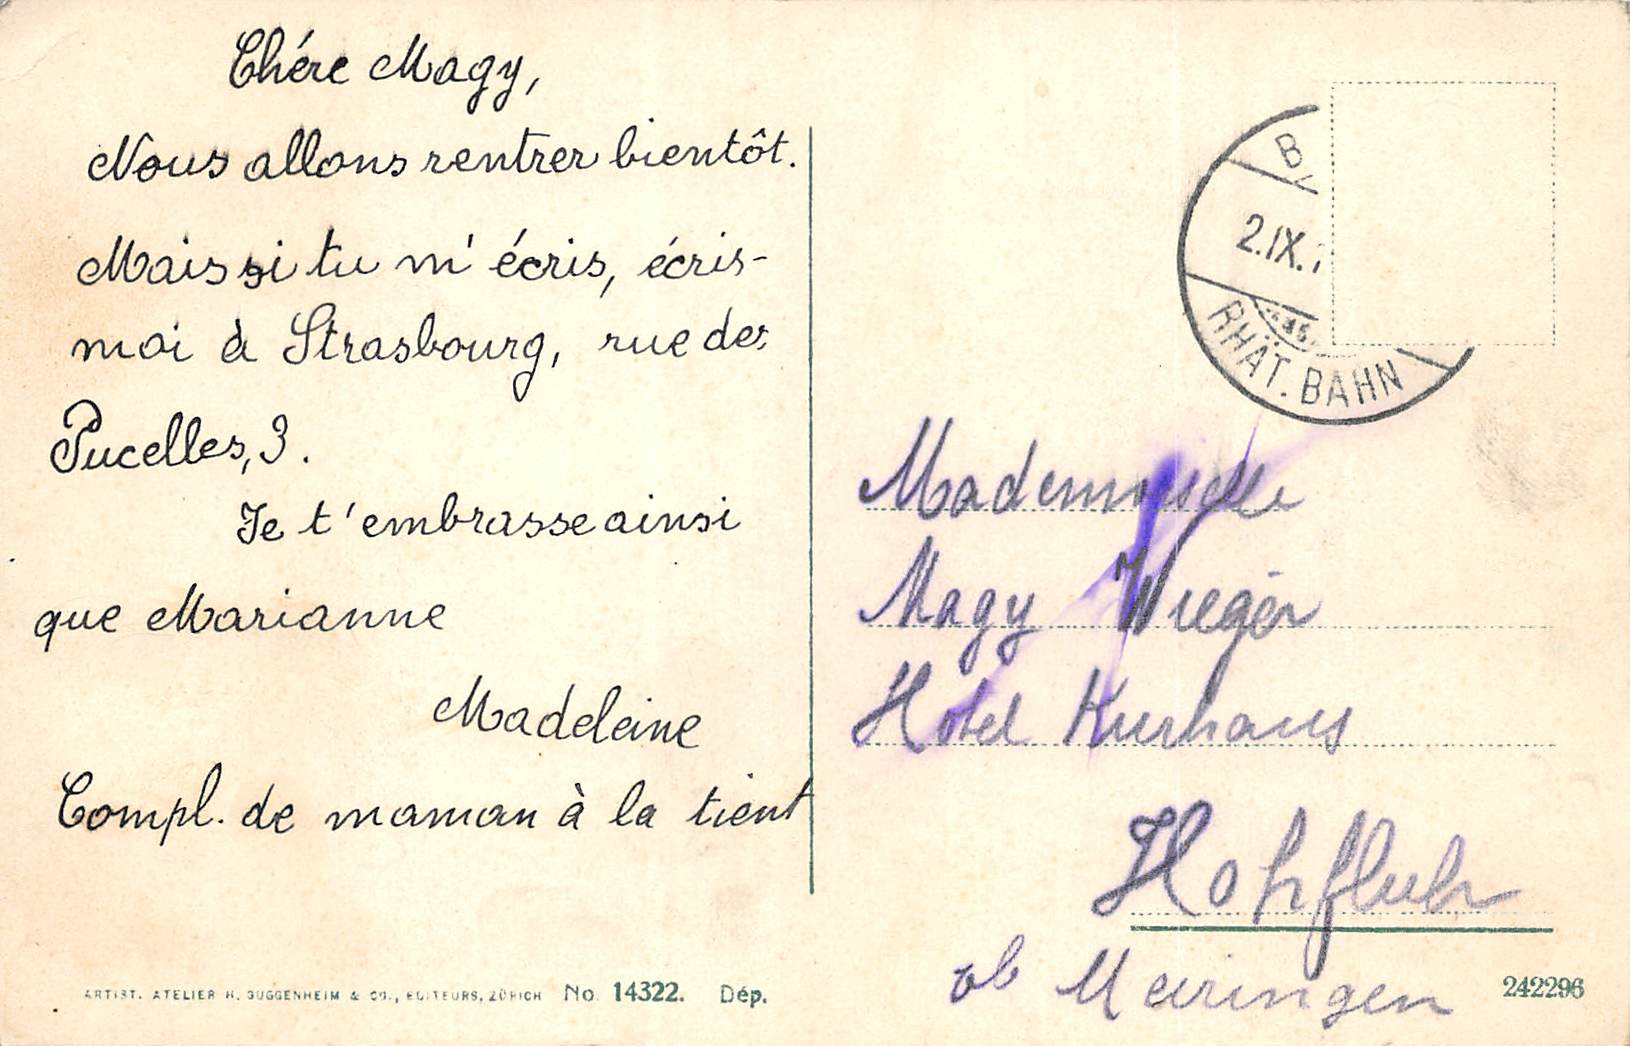 Chére Magy,
Nous allons rentrer bientôt.
Mais si tu m'écris, écris-
moi à Strasbourg, rue des
Pucelles, 3.
Je t'embrasse ainsi
que Marianne
Madeleine
Compl. de maman à la tient
ARTIST. ATELIER H. GUGGENHEIM & CO., EDITEURS, ZÜRICH No. 14322. Dép.
B
2.IX.
RHÄT. BAHN
Mademoiselle
Magy Wieger
Hotel Kurhaus
Hohfluh
ob Meiringen
242296